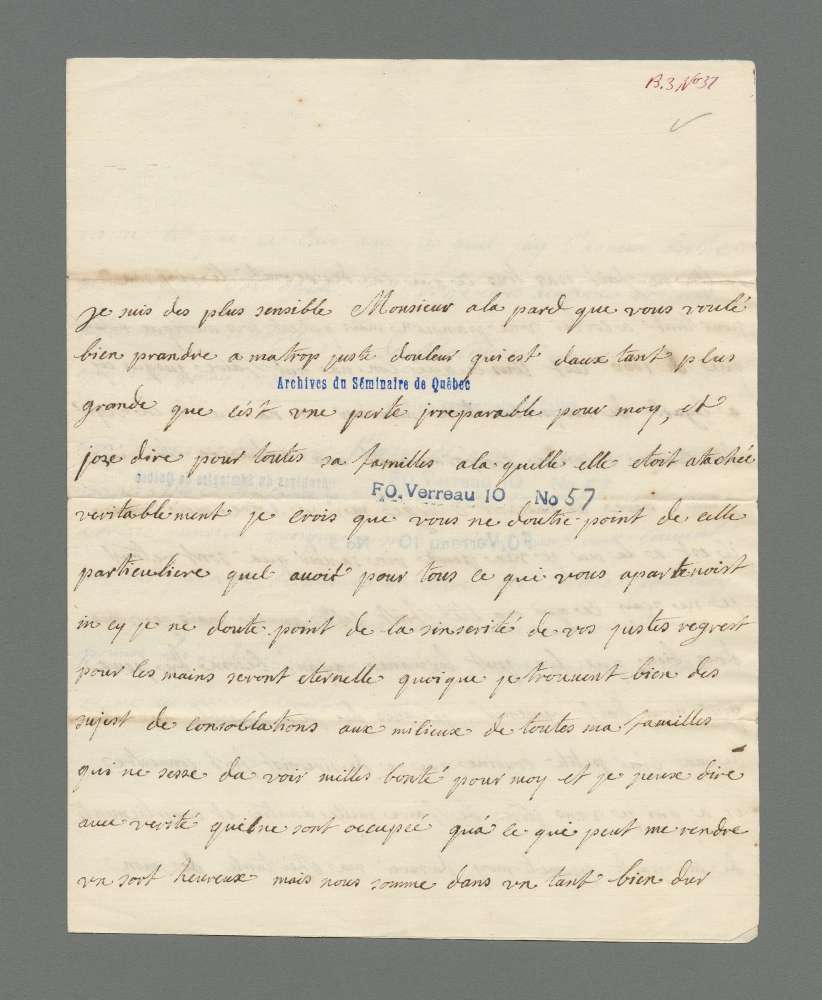 B.3 No 37
je suis des plus sensible Monsieur a la pard que vous voulé
bien prandre a ma trop juste douleur qui est daux tant plus
Archives du Séminaire de Québec
grande que cést une perte jrreparable pour moy, et
joze dire pour toutes sa familles a la quelle elle etoit atachée
FO. Verreau 10 No 57
veritablement je crois que vous ne doutié point de celle
particuliere quel avoit pour tous ce qui vous apartenoist
in cy je ne doute point de la sinserité de vos justes regrest
pour les mains seront eternelle quoique je trouvent bien des
sujest de consollations aux milieux de toutes ma familles
qui ne sesse da voir milles bonté pour moy et je peux dire
avec verité quilne sont occupéé quá ce qui peut me rendre
un sort heureux mais nous somme dans un tant bien dur